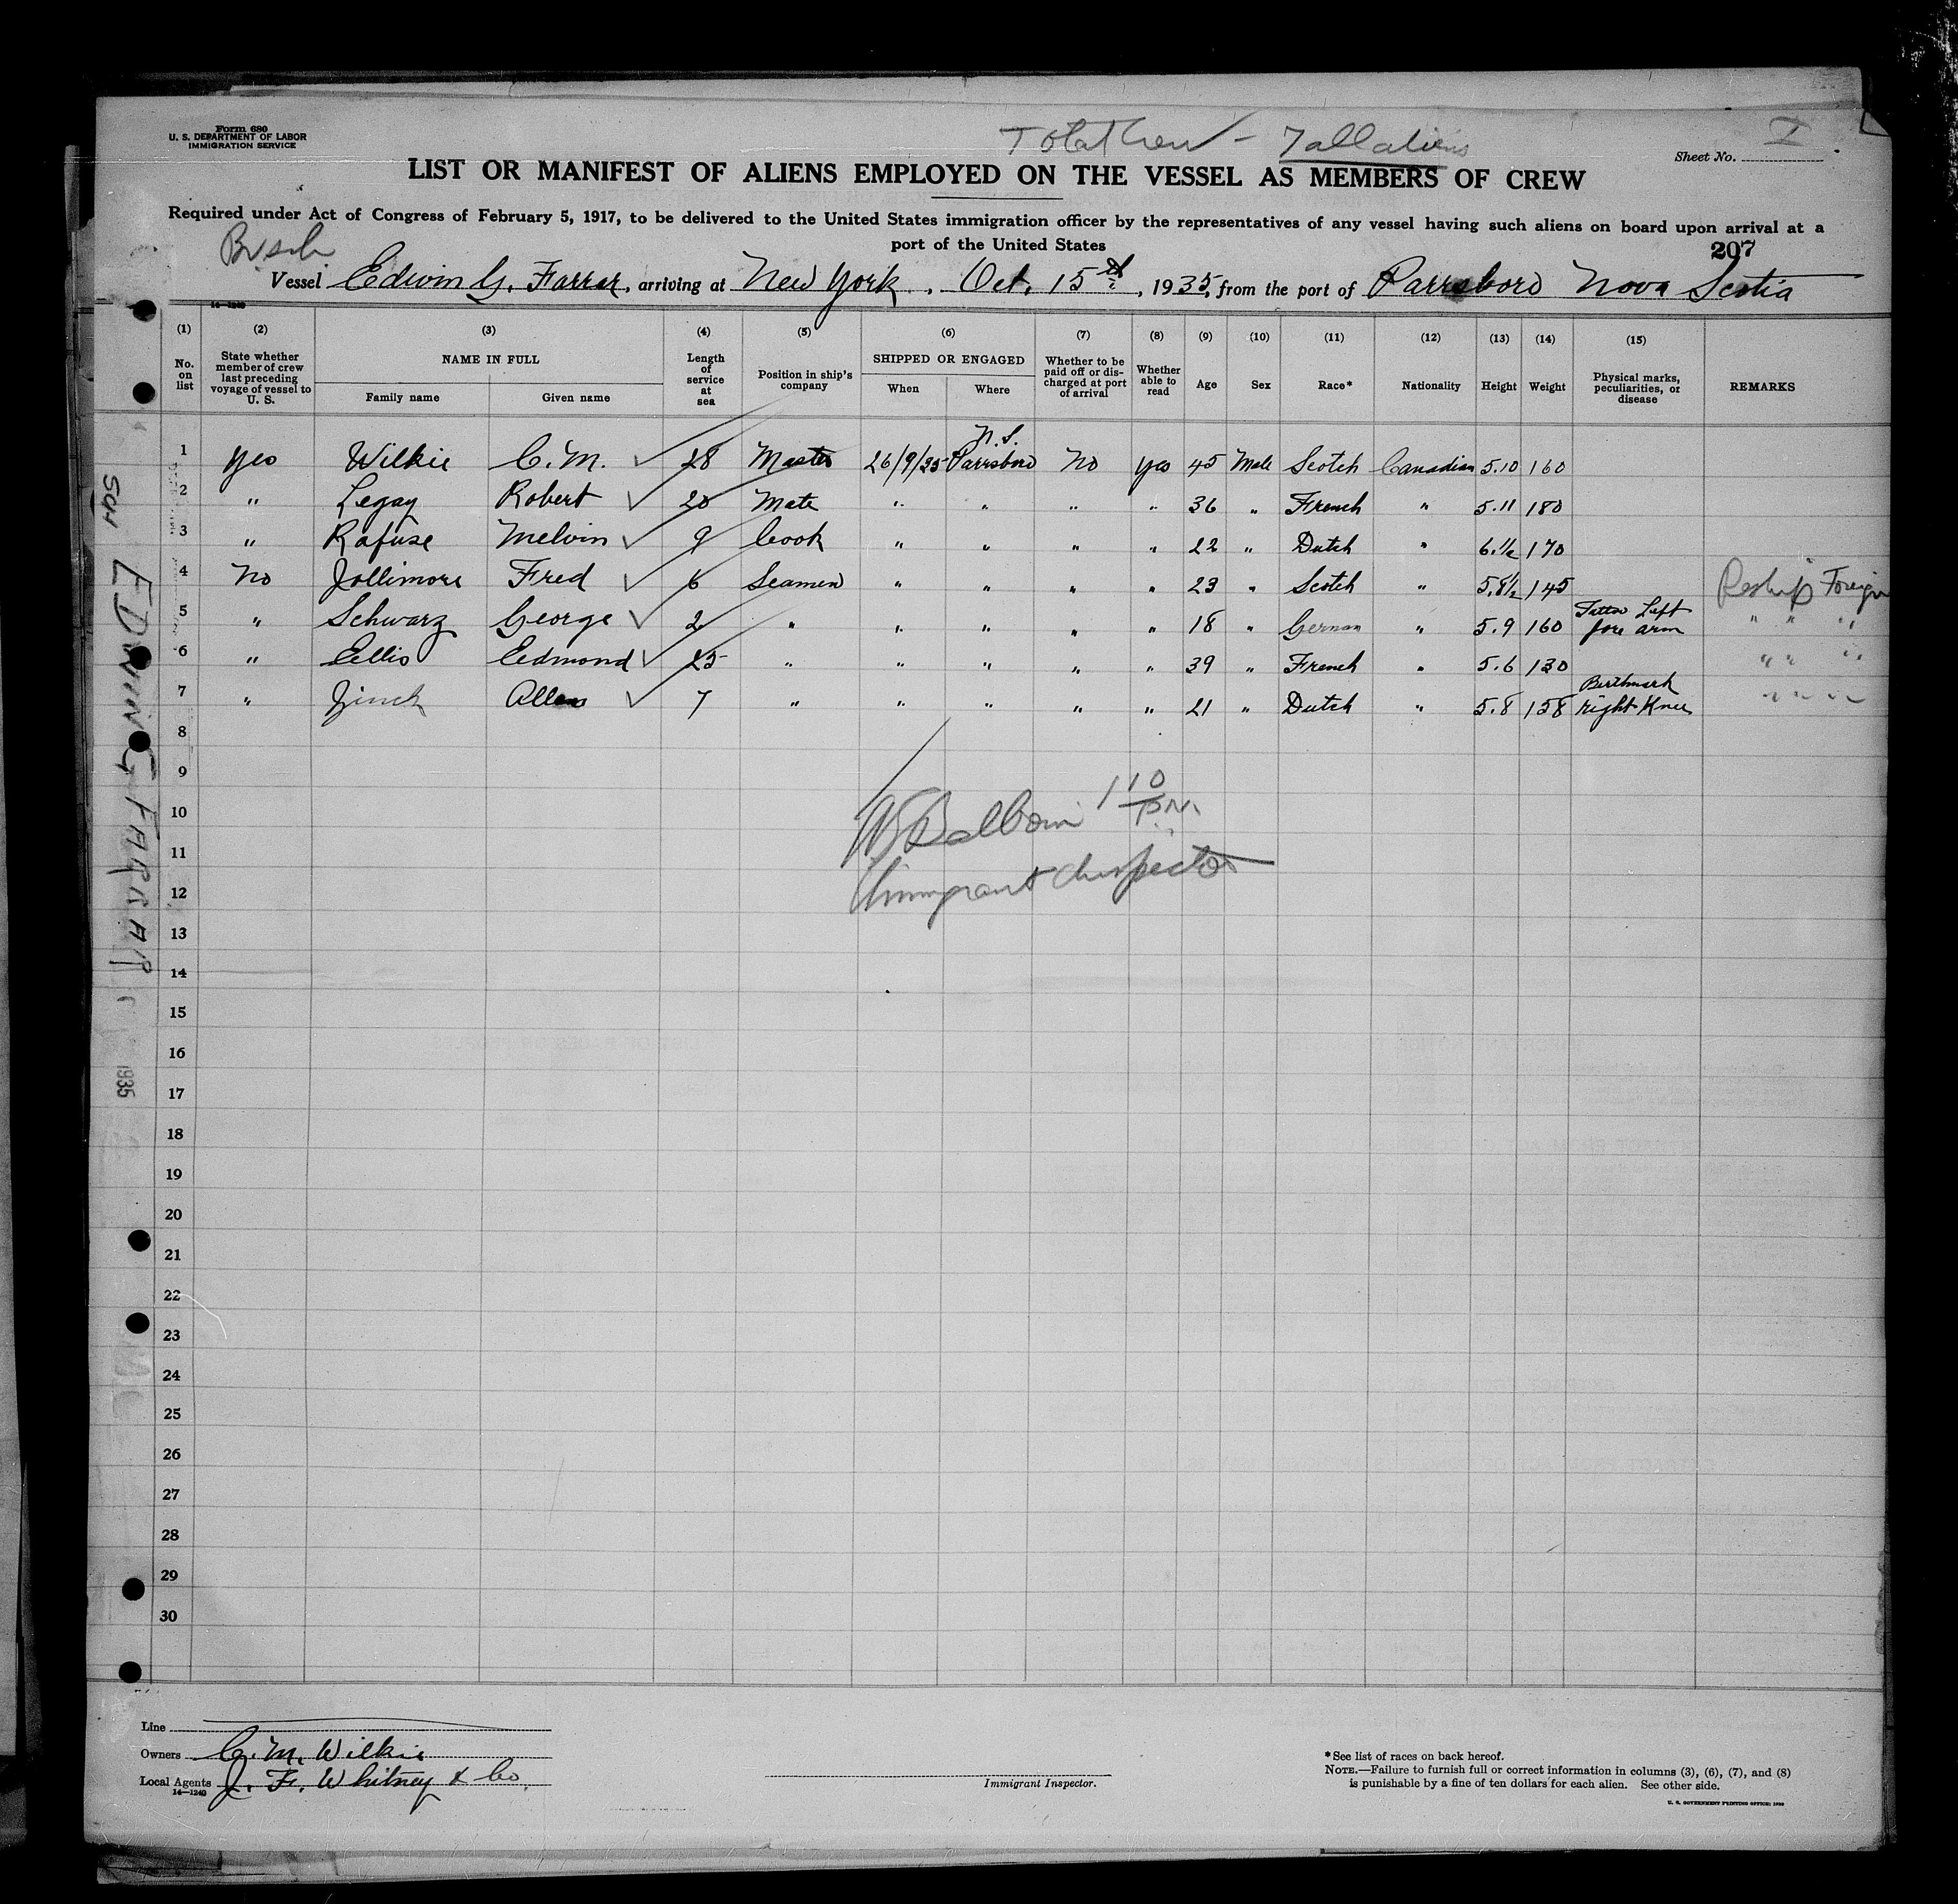 Form 680
U. S. DEPARTMENT OF LABOR
IMMIGRATION SERVICE
Total Crew - 7 all aliens
Sheet No. I
LIST OR MANIFEST OF ALIENS EMPLOYED ON THE VESSEL AS MEMBERS OF CREW
Required under Act of Congress of February 5, 1917, to be delivered to the United States immigration officer by the representatives of any vessel having such aliens on board upon arrival at a
port of the United States
207
Br sch
Vessel Edwin G. Farrar, arriving at New York, Oct. 15th, 1935, from the port of Parrsboro Nova Scotia
14—1240
(1) (2) (3) (4) (5) (6) (7) (8) (9) (10) (11) (12) (13) (14) (15)
No. on list
State whether member of crew last preceding voyage of vessel to U. S.
NAME IN FULL
Family name Given name
Length of service at sea
Position in ship's company
SHIPPED OR ENGAGED
When Where
Whether to be paid off or discharged at port of arrival
Whether able to read
Age Sex Race* Nationality Height Weight
Physical marks, peculiarities, or disease
REMARKS
N.S.
1 Yes Wilkie C. M. 28 Master 26/9/35 Parrsboro No Yes 45 Male Scotch Canadian 5.10 160
2 " Legay Robert 20 Mate " " " " 36 " French " 5.11 180
3 " Rafuse Melvin 9 Cook " " " " 22 " Dutch " 6.1/2 170
4 No Jollimore Fred 6 Seamen " " " " 23 " Scotch " 5.8 1/2 145 Reship Foreign
5 " Schwarz George 2 " " " " " 18 " German " 5.9 160 Tattoo Left fore arm " " "
6 " Ellis Edmond 25 " " " " " 39 " French " 5.6 130 " " "
7 " Zinck Allen 7 " " " " " 21 " Dutch " 5.8 158 Birthmark right Knee " " " "
8
9
10
11
12
13
14
15
16
17
18
19
20
21
22
23
24
25
26
27
28
29
30
1 10 P.M.
Immigrant Inspector
SCH EDWIN G FARRAR
1935
Line
Owners C. M. Wilkie
Local Agents J. F. Whitney & Co.
14—1240
Immigrant Inspector.
* See list of races on back hereof.
NOTE.—Failure to furnish full or correct information in columns (3), (6), (7), and (8)
is punishable by a fine of ten dollars for each alien. See other side.